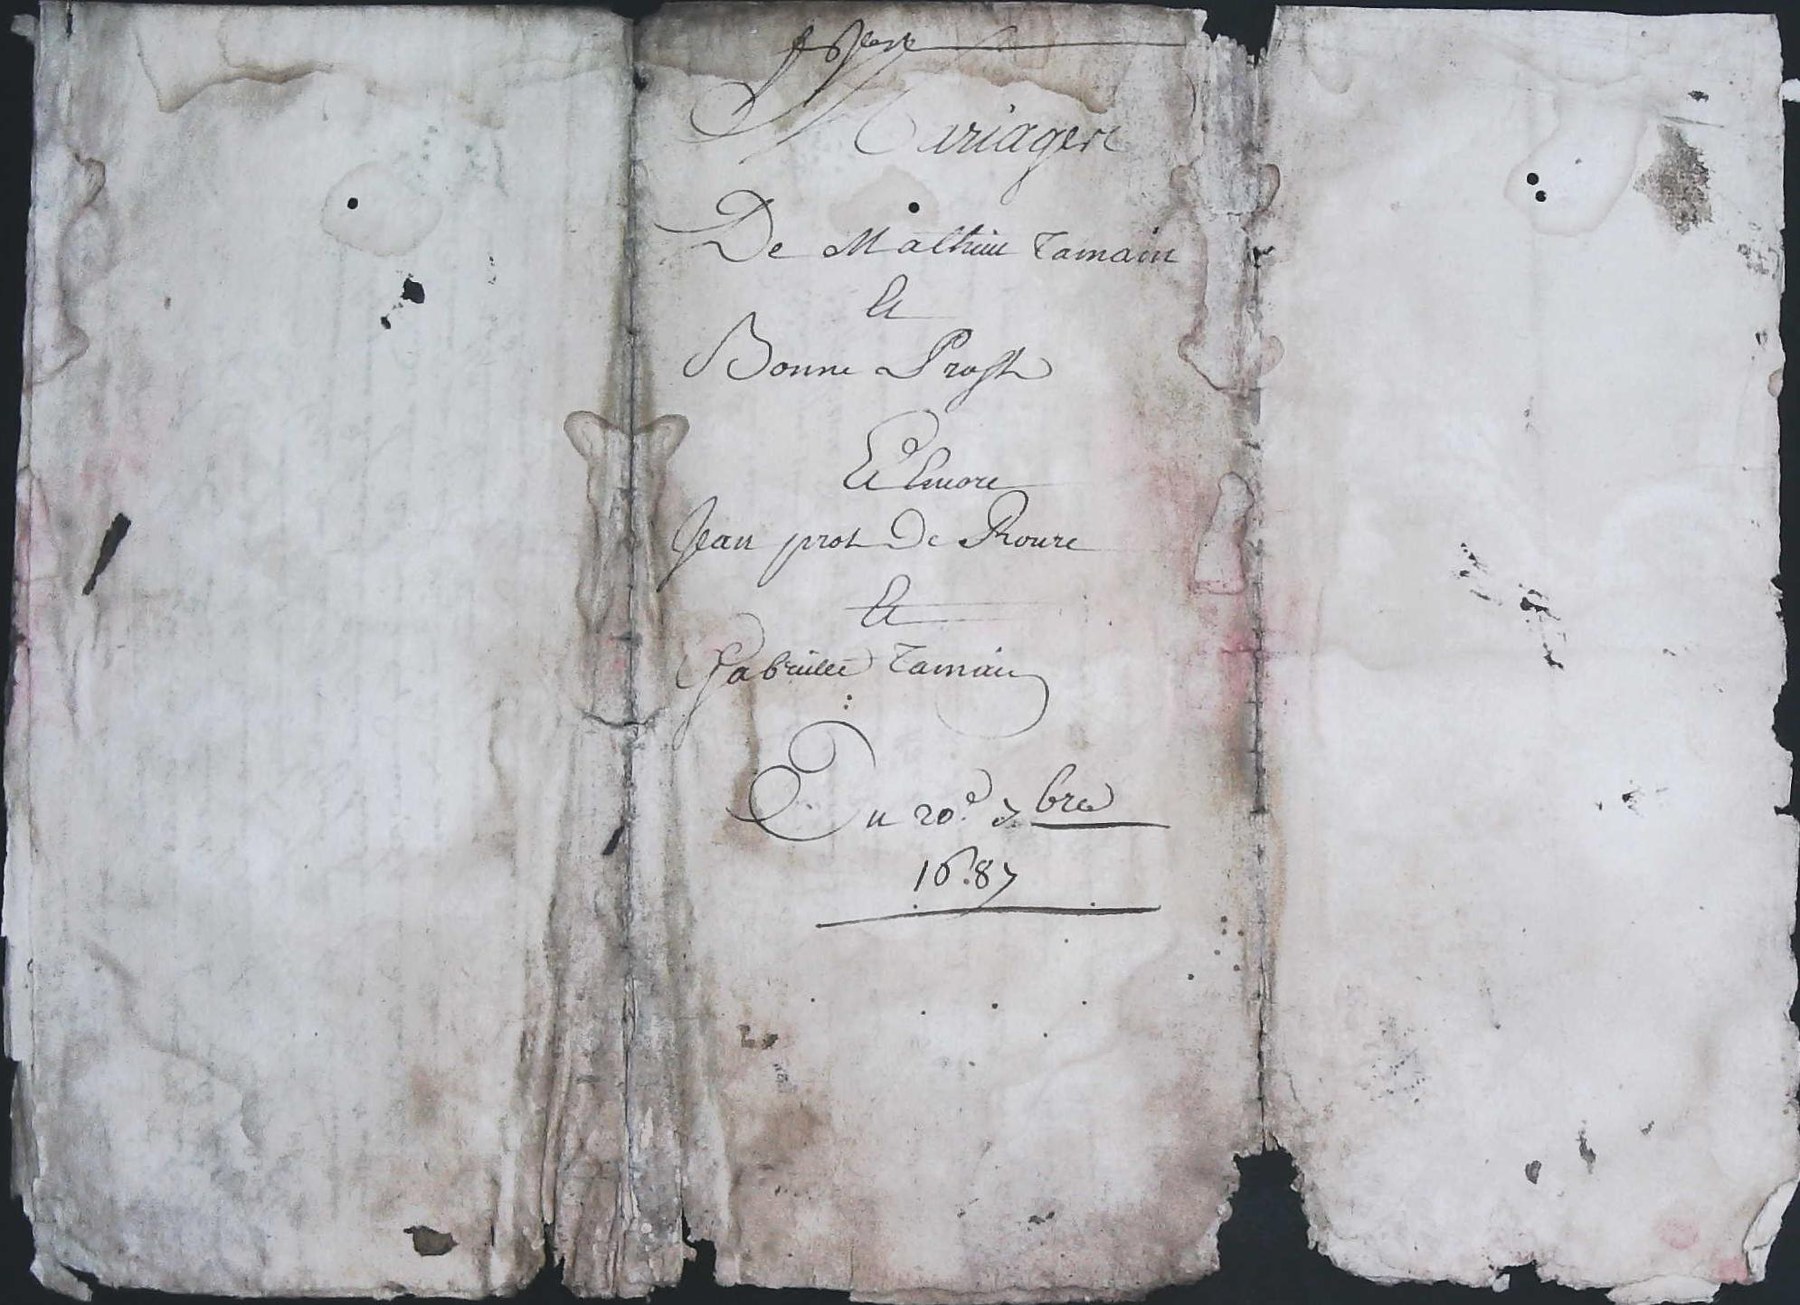 Mariages
De Mathieu Tamain
Et
Bonne Prost
Et Encore
Jean prost De Roure
Et
Gabrielle Tamain
Du 20.e 7 bre
1687